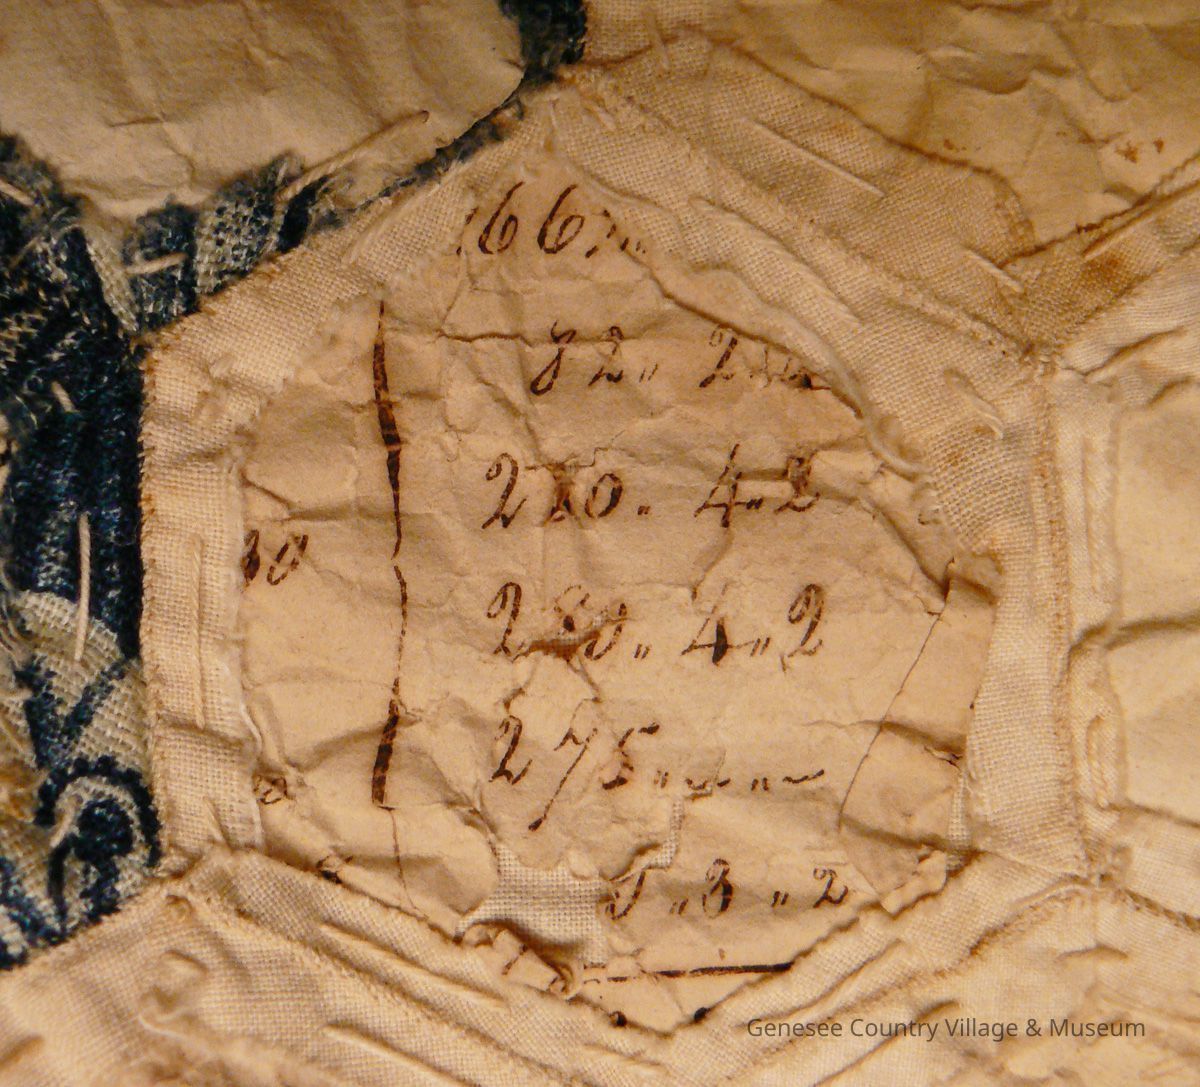 166
82 „ 2
210 . 4 „ 2
10
280 „ 4 „ 2
275 „ „
5 „ 3 „ 2
Genesee Country Village & Museum